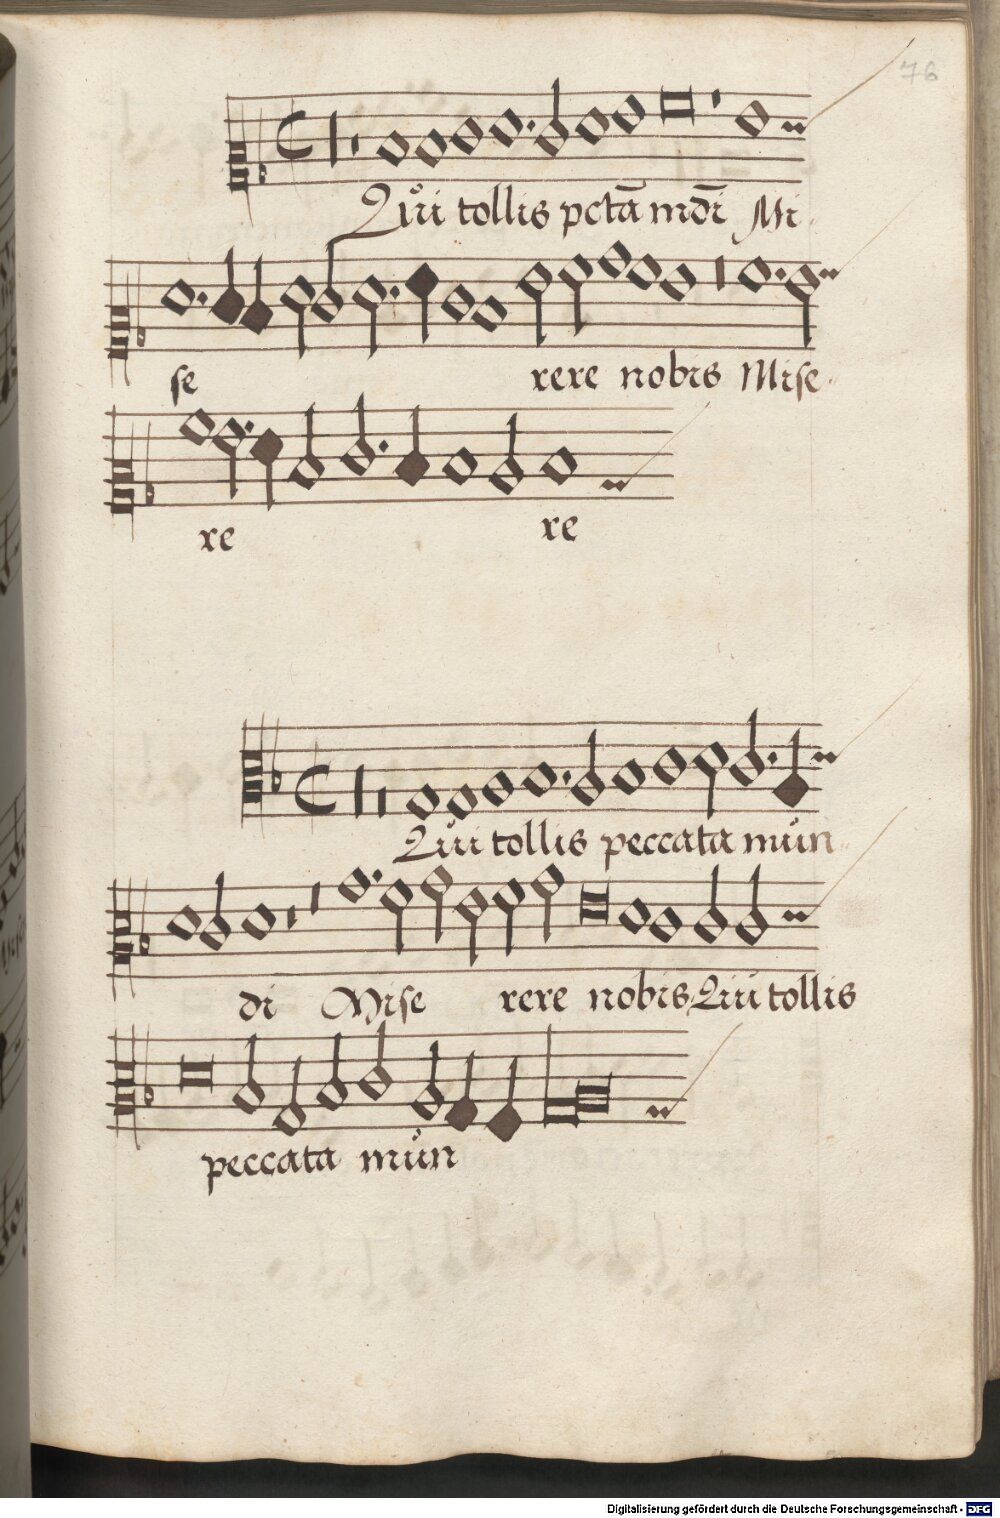 76
Qui tollis pctā mdī Mi
se rere nobis Mise
re re
Qui tollis peccata mun
di Mise rere nobis Qui tollis
peccata mun
Digitalisierung gefördert durch die Deutsche Forschungsgemeinschaft - DFG